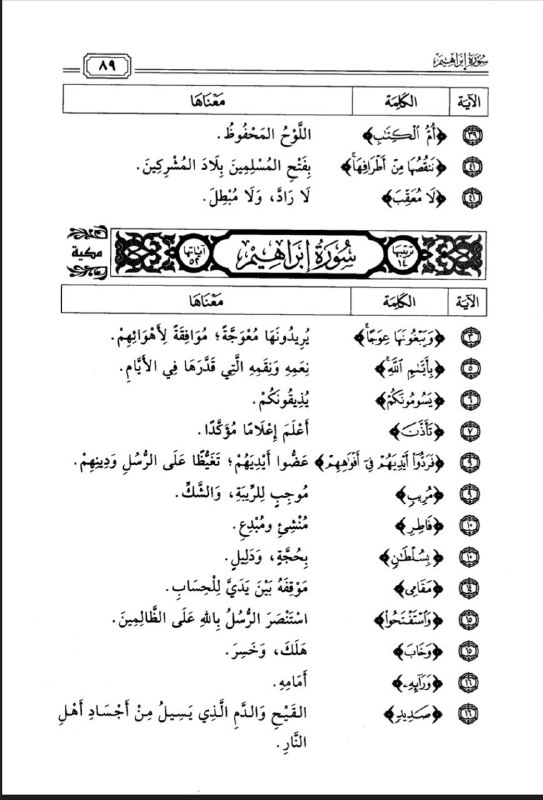 سُورَةُ إِبْرَاهِيمَ ٨٩
الآيَة الكَلِمَة مَعْنَاهَا
٣٩ ﴿أُمُّ الْكِتَابِ﴾ اللَّوْحُ المَحْفُوظُ.
٤١ ﴿نَنقُصُهَا مِنْ أَطْرَافِهَا﴾ بِفَتْحِ المُسْلِمِينَ بِلَادَ المُشْرِكِينَ.
٤١ ﴿لَا مُعَقِّبَ﴾ لَا رَادَّ، وَلَا مُبْطِلَ.
مكية آياتها ٥٢ سُورَةُ إِبْرَاهِيمَ ترتيبها ١٤
الآيَة الكَلِمَة مَعْنَاهَا
٣ ﴿وَيَبْغُونَهَا عِوَجًا﴾ يُرِيدُونَهَا مُعْوَجَّةً؛ مُوَافِقَةً لِأَهْوَائِهِمْ.
٥ ﴿بِأَيَّىٰمِ اللَّهِ﴾ نِعَمِهِ وَنِقَمِهِ الَّتِي قَدَّرَهَا فِي الأَيَّامِ.
٦ ﴿يَسُومُونَكُمْ﴾ يُذِيقُونَكُمْ.
٧ ﴿تَأَذَّنَ﴾ أَعْلَمَ إِعْلَامًا مُؤَكَّدًا.
٩ ﴿فَرَدُّوا أَيْدِيَهُمْ فِي أَفْوَاهِهِمْ﴾ عَضُّوا أَيْدِيَهُمْ؛ تَغَيُّظًا عَلَى الرُّسُلِ وَدِينِهِمْ.
٩ ﴿مُرِيبٍ﴾ مُوجِبٍ لِلرِّيبَةِ، وَالشَّكِّ.
١٠ ﴿فَاطِرِ﴾ مُنْشِئِ ومُبْدِعِ.
١٠ ﴿بِسُلْطَانٍ﴾ بِحُجَّةٍ، وَدَلِيلٍ.
١٤ ﴿مَقَامِي﴾ مَوْقِفَهُ بَيْنَ يَدَيَّ لِلْحِسَابِ.
١٥ ﴿وَاسْتَفْتَحُوا﴾ اسْتَنْصَرَ الرُّسُلُ بِاللهِ عَلَى الظَّالِمِينَ.
١٥ ﴿وَخَابَ﴾ هَلَكَ، وَخَسِرَ.
١٦ ﴿وَرَائِهِ﴾ أَمَامِهِ.
١٦ ﴿صَدِيدٍ﴾ القَيْحِ وَالدَّمِ الَّذِي يَسِيلُ مِنْ أَجْسَادِ أَهْلِ
النَّارِ.